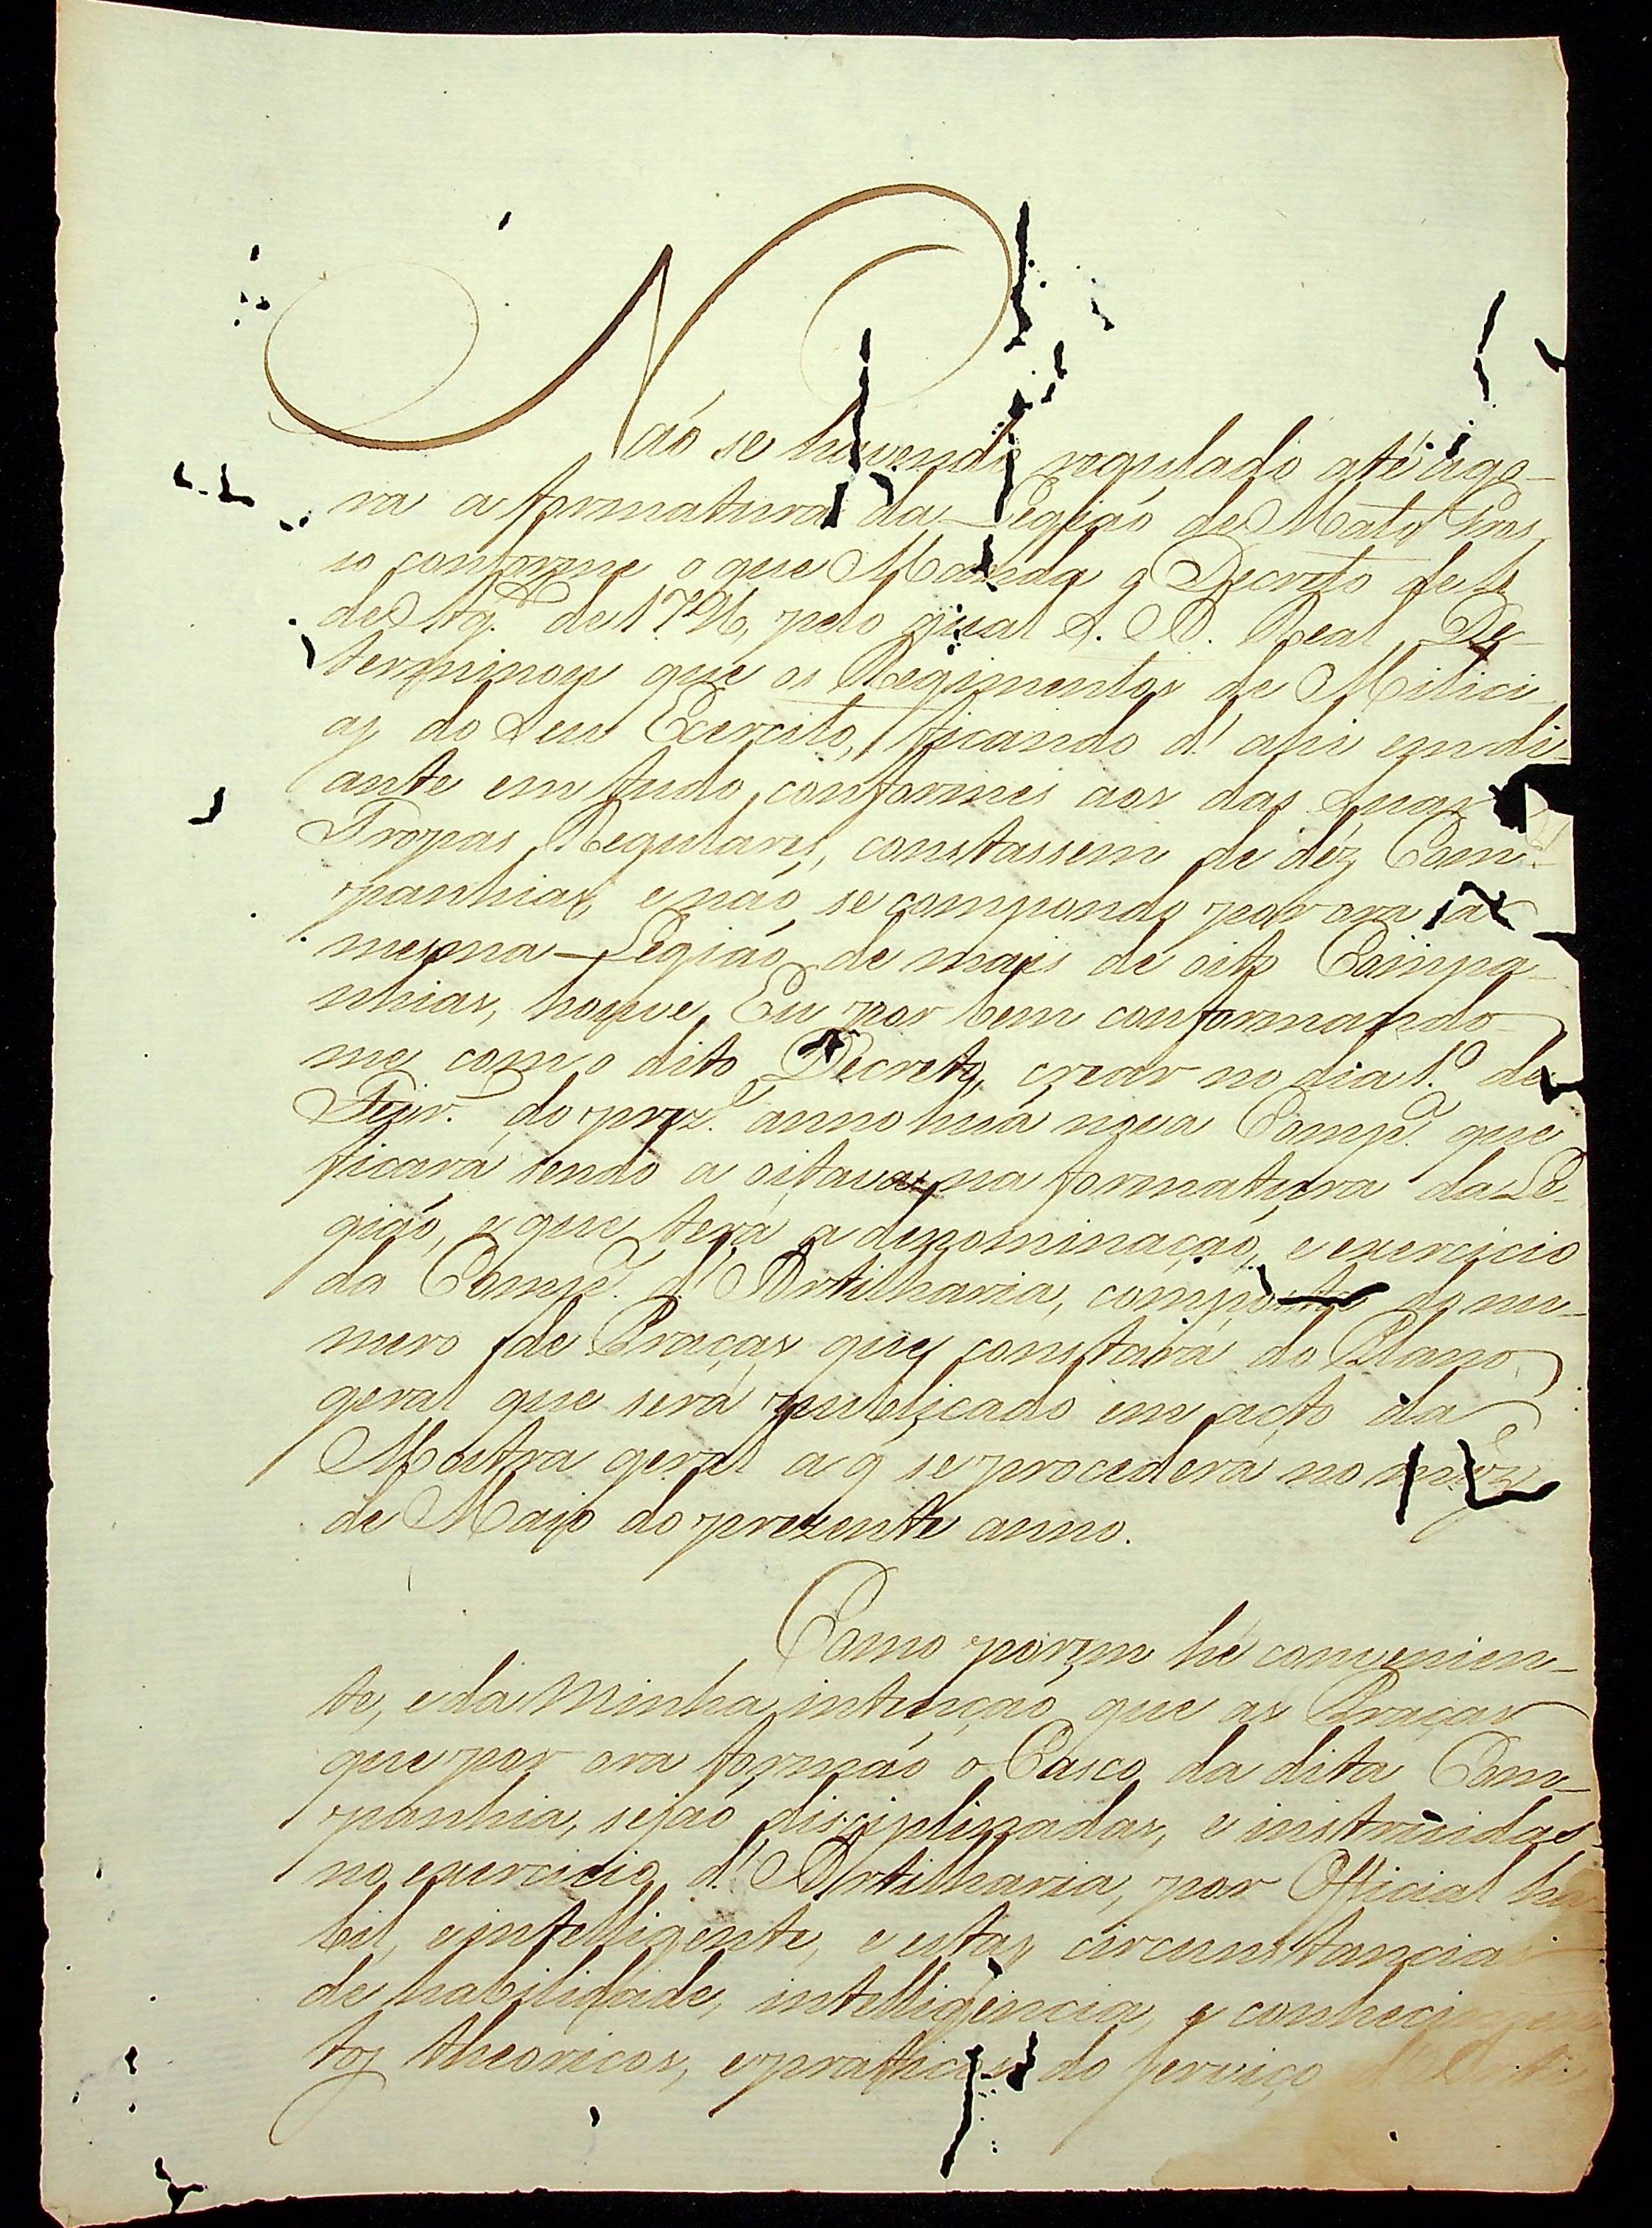 Naó se havendo regulado até ago-
ra a formatura da Legiaó de Mato Gros-
so conforme o que Manda o Decreto de
de Ag.to de 1796, pelo qual S. A. Real De-
terminou que os Regimentos de Milici-
as do Seu Exercito, ficando d'ahi em di-
ante em tudo conformes aos das Suas
Tropas Regulares, constassem de déz Com-
panhias, e naó se compondo por ora a
mesma Legiaó de mais de oito Compa-
nhias, houve Eu por bem conformando-
me com o dito Decreto, crear no dia 1.º de
Fevr.º do prez.e anno huá nova Comp.ª que
ficará sendo a oitava na formatura da Le-
giaó, e que terá a denominaçaó, e exercicio
da Comp.ª d'Artilharia, composta do nu-
mero de Praças que constará do Plano
geral que será publicado em acto da
Mostra geral a q̃ se procederá no mez
de Maio do prezente anno.
Como porem hé convenien-
te, e da Minha intençaó que as Praças
que por ora formaó o Casco da dita Com-
panhia, sejaó disciplinadas, e instruidas
no exercicio d'Artilharia, por Official ha-
bil, e intelligente, e estas circumstancias
de habilidade, intelligencia, e conhecimen-
tos theoricos, e praticos do serviço d'Arti-